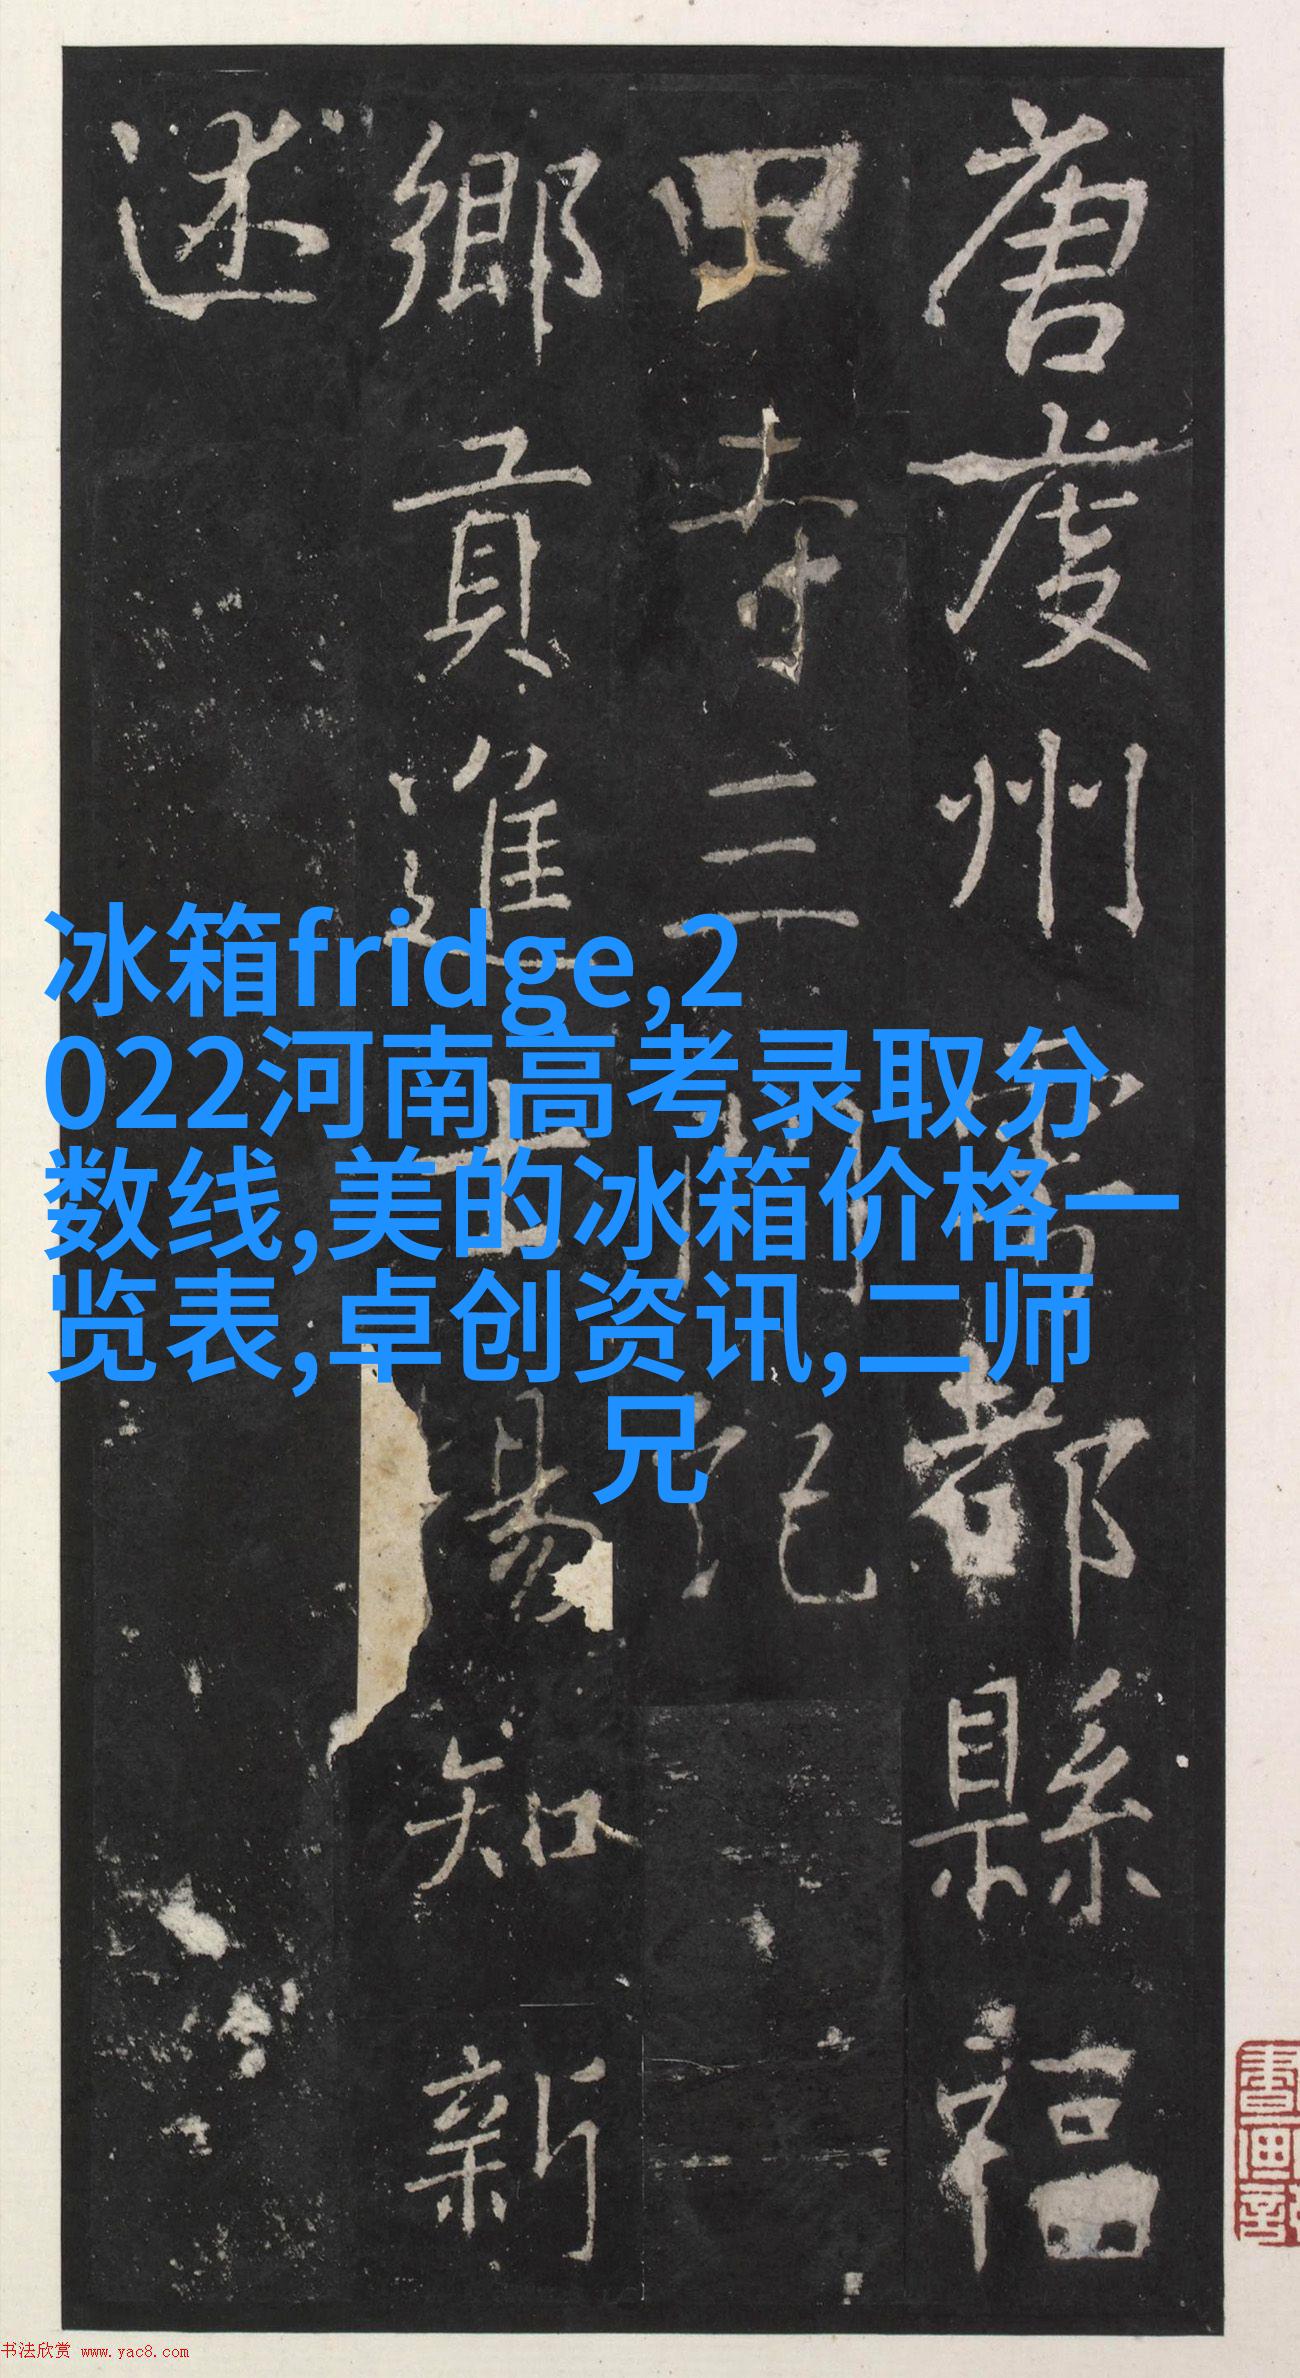 唐虔州雩都縣福
田寺三門記
鄉貢進士知新
述
冰箱fridge,2
022河南高考录取分
数线,美的冰箱价格一
览表,卓创资讯,二师
兄
书法欣赏 www.yac8.com